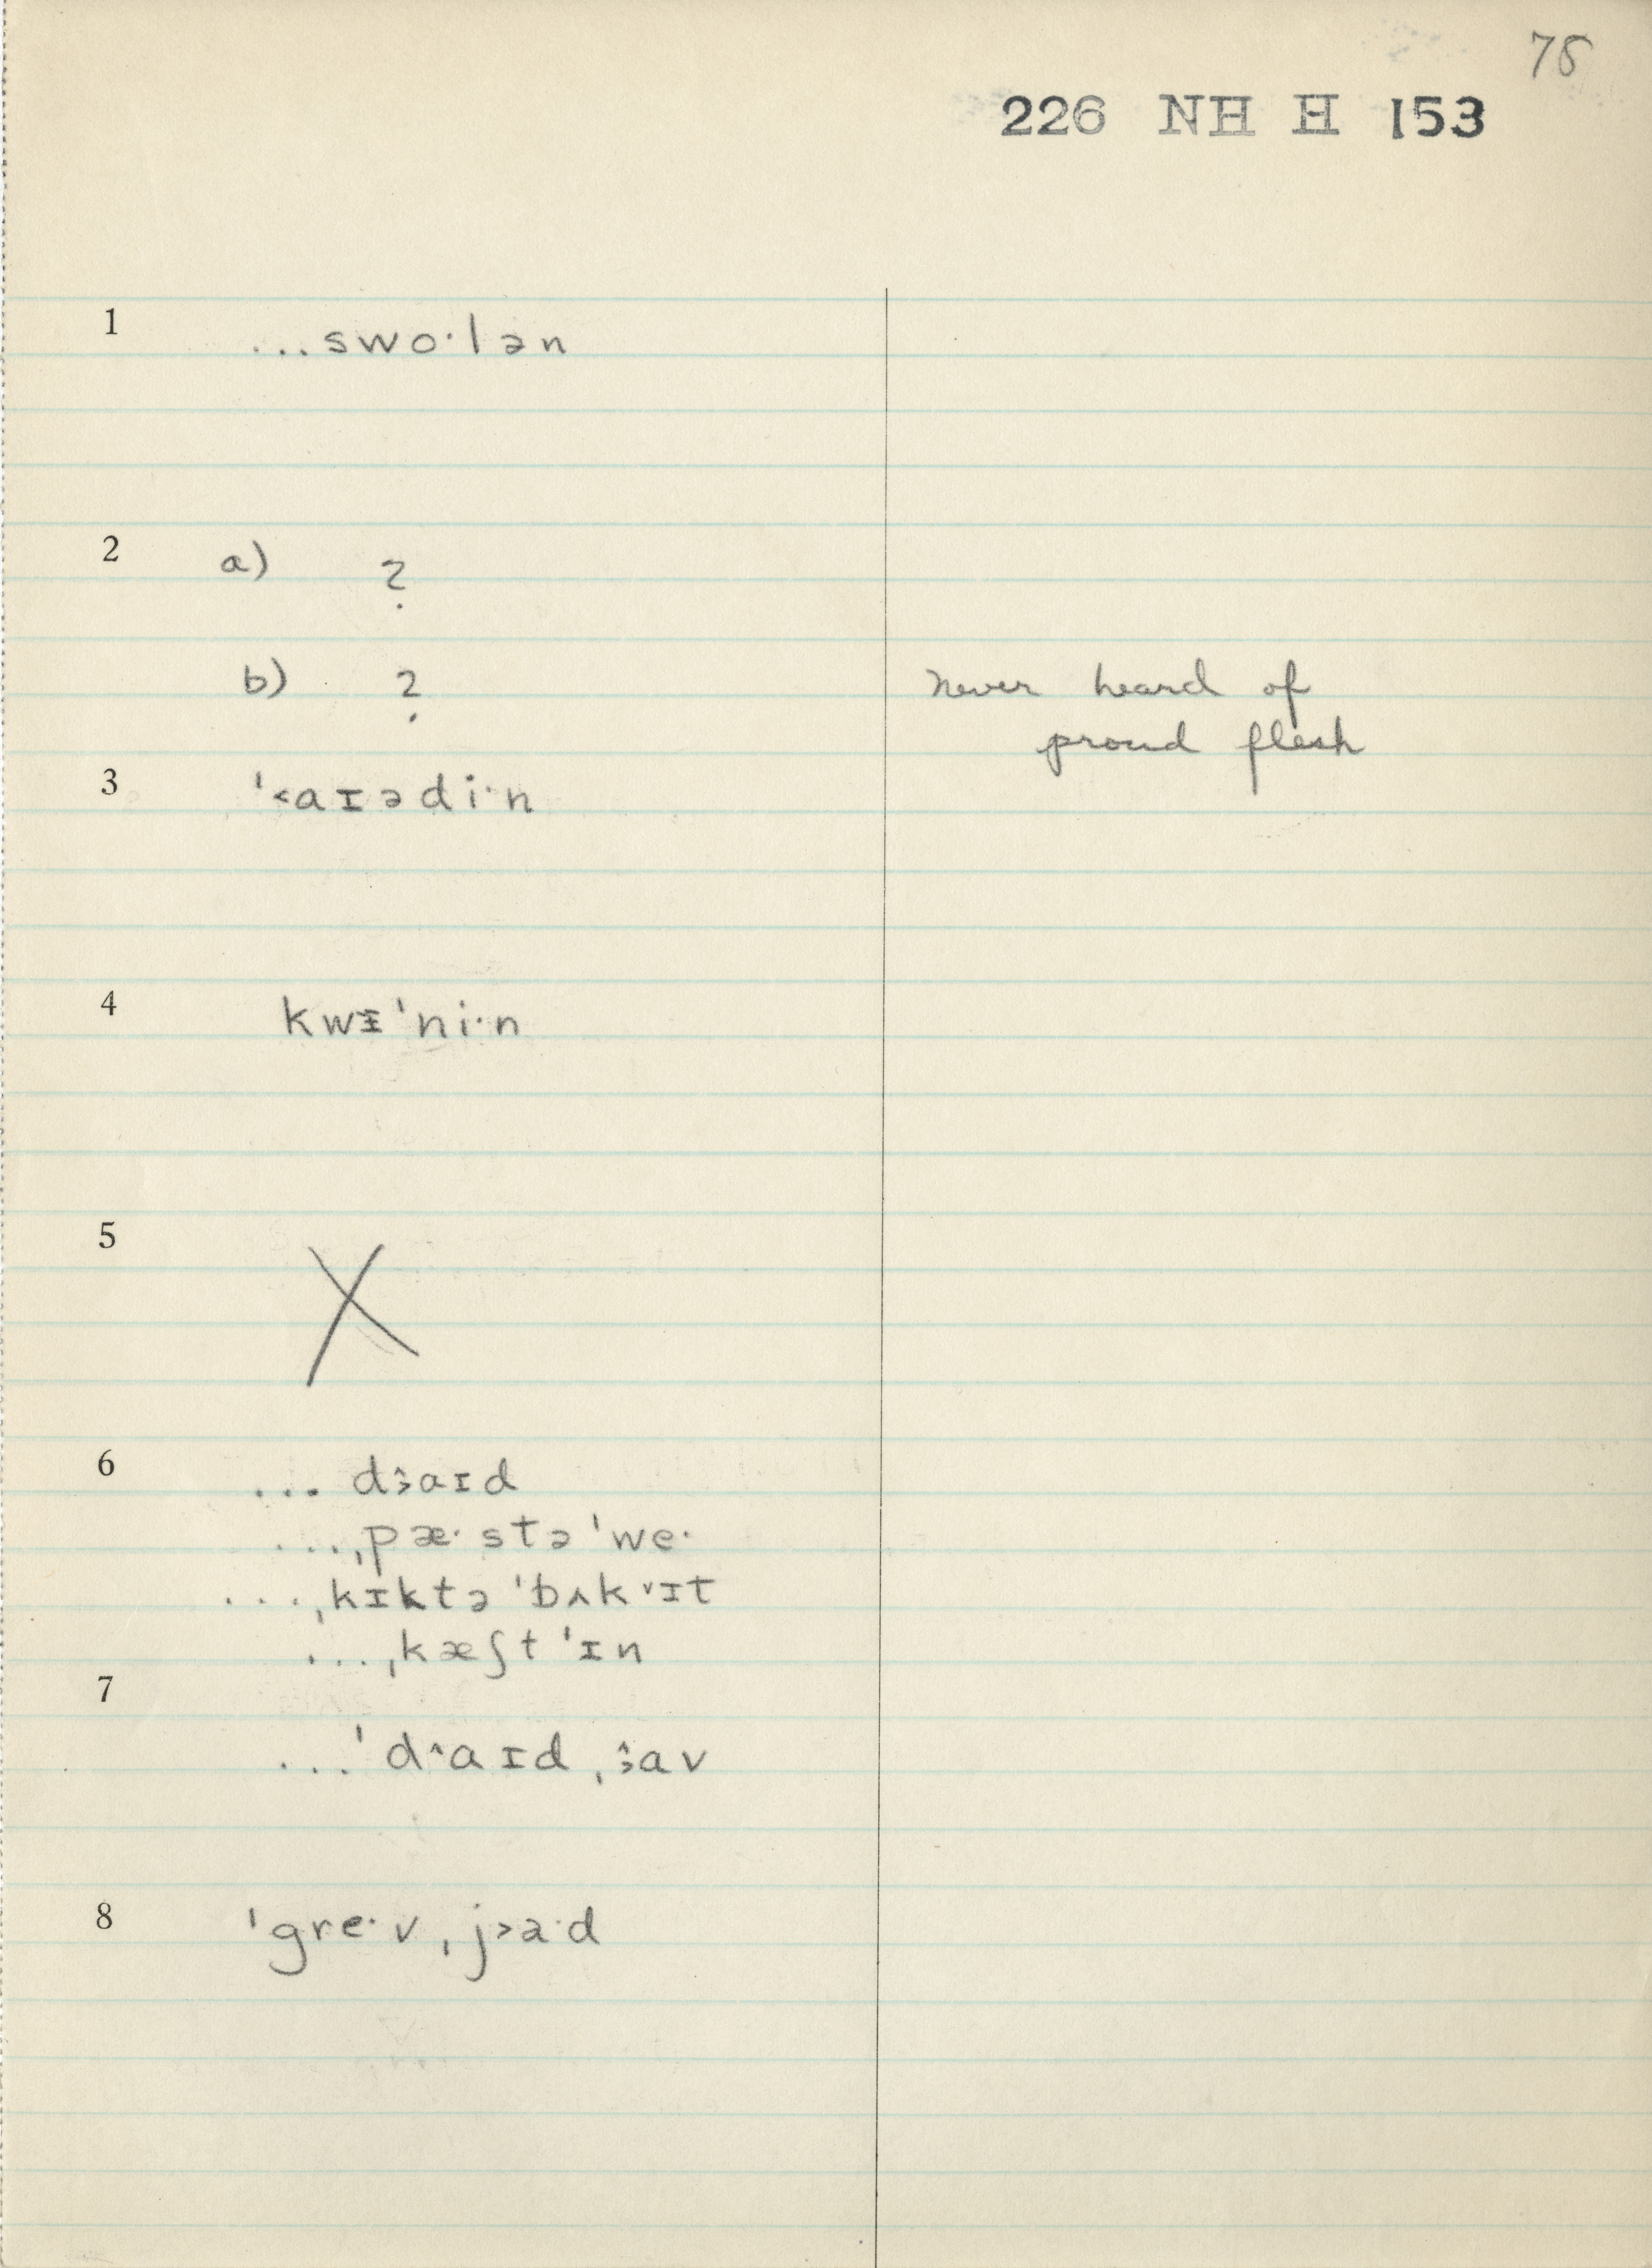 78
226 NH H 153
1 ...swo·lən
2 a) ?
b) ? never heard of
proud flesh
3 ˈ˂aɪədi·n
4 kwᵻˈni·n
5 X
6 ... d˃̂aɪd
...ˌpæ·stəˈwe·
...ˌkɪktəˈbʌk˅ɪt
...ˌkæʃtˈɪn
7
...ˈd˄aɪdˌ˃̂av
8 ˈgre·vˌj˃a·d